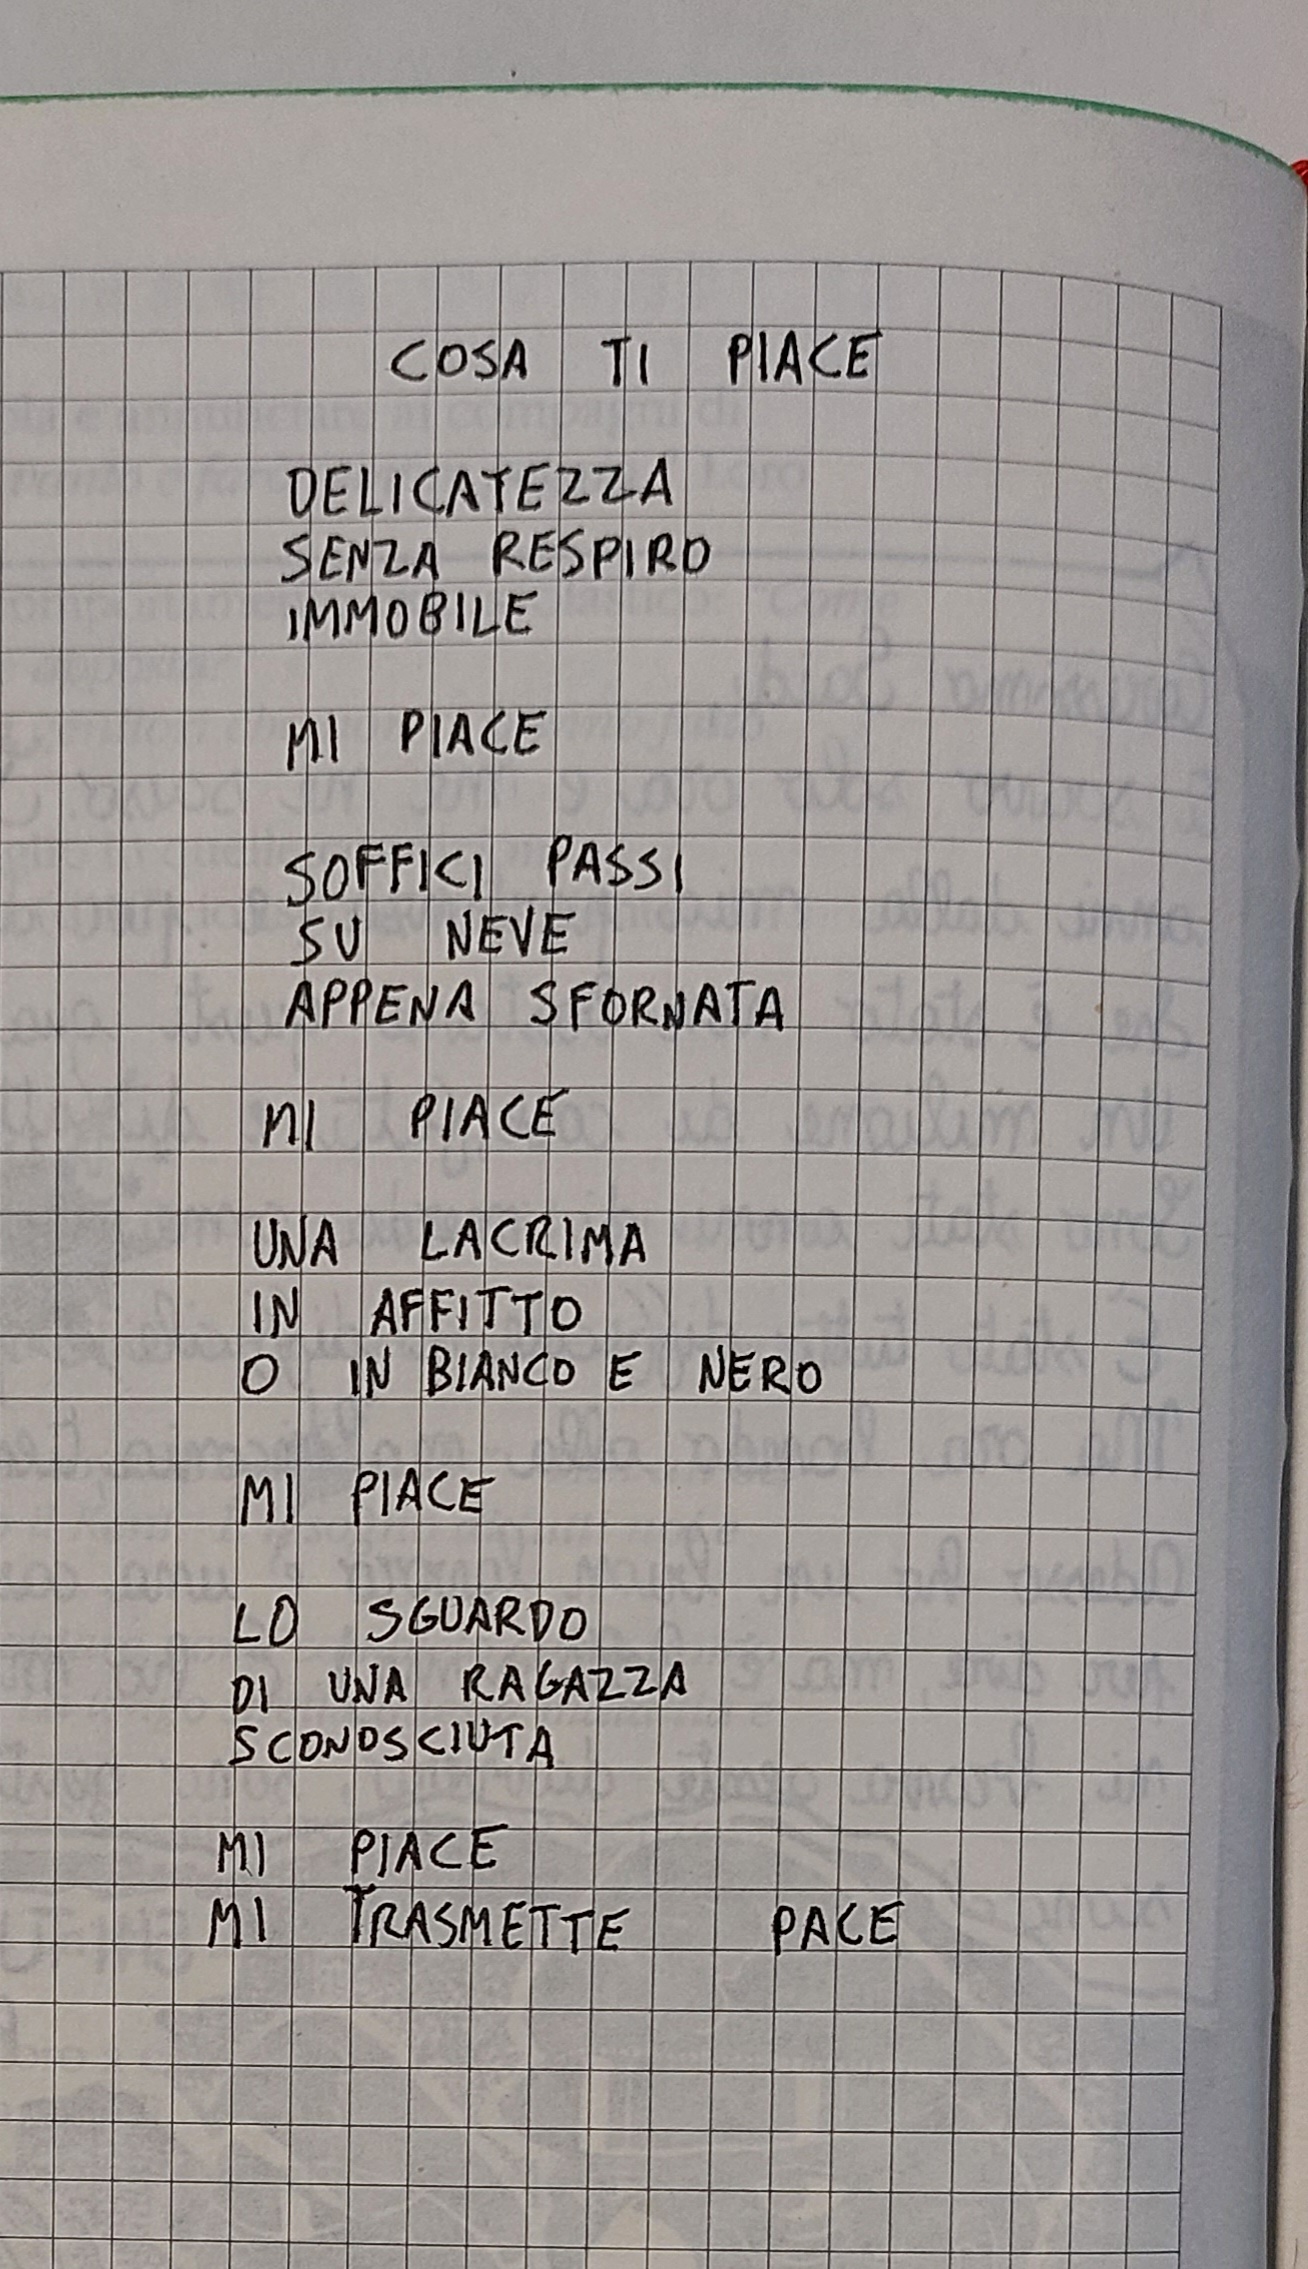 COSA TI PIACE
DELICATEZZA
SENZA RESPIRO
IMMOBILE
MI PIACE
SOFFICI PASSI
SU NEVE
APPENA SFORNATA
MI PIACE
UNA LACRIMA
IN AFFITTO
O IN BIANCO E NERO
MI PIACE
LO SGUARDO
DI UNA RAGAZZA
SCONOSCIUTA
MI PIACE
MI TRASMETTE PACE